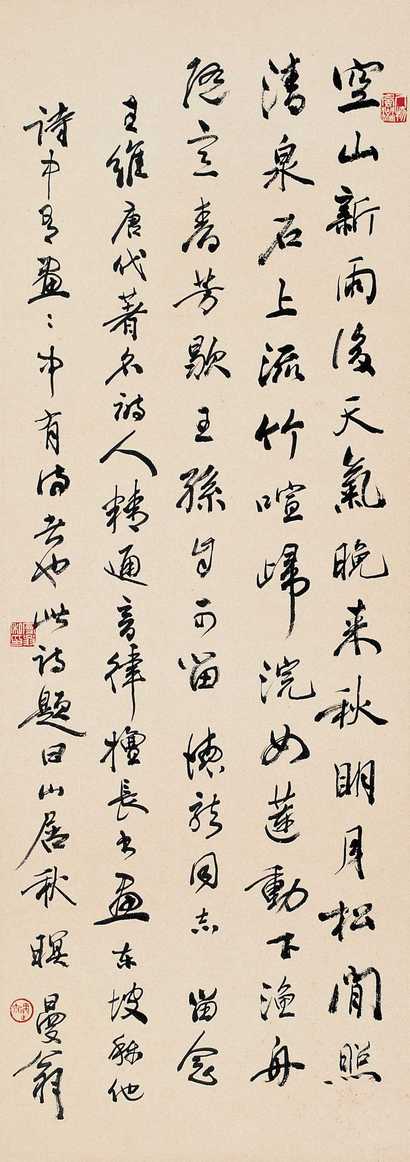 空山新雨後天氣晚来秋明月松間照
清泉石上流竹喧歸浣女蓮動下漁舟
随意春芳歇王孫自可留 龍同志 留念
王維唐代著名詩人精通音律擅長書画東坡稱他
詩中有畫〻中有詩者也此詩題曰山居秋暝 曼翁